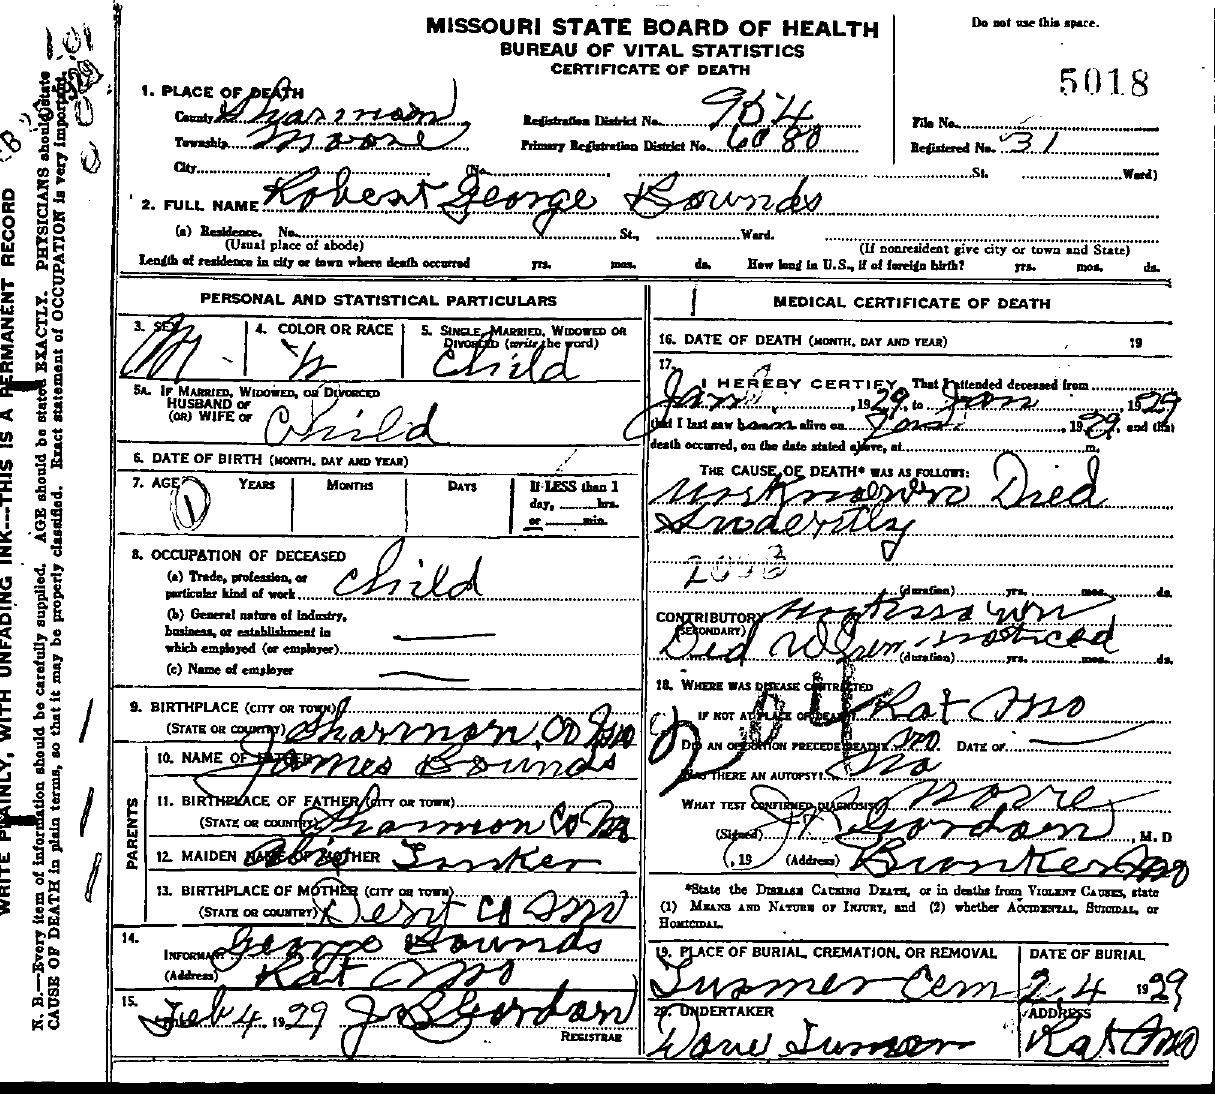 MISSOURI STATE BOARD OF HEALTH
BUREAU OF VITAL STATISTICS
CERTIFICATE OF DEATH
Do not use this space.
5018
1. PLACE OF DEATH
County Shannon Registration District No. 954 File No.
Township Moore Primary Registration District No. 6080 Registered No. 31
City (No. St. Ward)
2. FULL NAME Robert George Bounds
(a) Residence. No. St., Ward.
(Usual place of abode) (If nonresident give city or town and State)
Length of residence in city or town where death occurred yrs. mos. ds. How long in U.S., if of foreign birth? yrs. mos. ds.
PERSONAL AND STATISTICAL PARTICULARS
3. SEX M 4. COLOR OR RACE W 5. SINGLE, MARRIED, WIDOWED OR DIVORCED (write the word) Child
5A. IF MARRIED, WIDOWED, OR DIVORCED
HUSBAND OF
(OR) WIFE OF Child
6. DATE OF BIRTH (MONTH, DAY AND YEAR)
7. AGE YEARS MONTHS DAYS If LESS than 1
1 day, hrs.
or min.
8. OCCUPATION OF DECEASED
(a) Trade, profession, or
particular kind of work Child
(b) General nature of industry,
business, or establishment in
which employed (or employer)
(c) Name of employer
9. BIRTHPLACE (CITY OR TOWN)
(STATE OR COUNTRY) Shannon Co Mo
PARENTS
10. NAME OF FATHER James Bounds
11. BIRTHPLACE OF FATHER (CITY OR TOWN)
(STATE OR COUNTRY) Shannon Co Mo
12. MAIDEN NAME OF MOTHER Tinker
13. BIRTHPLACE OF MOTHER (CITY OR TOWN)
(STATE OR COUNTRY) Dent Co Mo
14.
INFORMANT George Bounds
(Address) Rat Mo
15. Feb 4 1929 J B Gordon
REGISTRAR
MEDICAL CERTIFICATE OF DEATH
16. DATE OF DEATH (MONTH, DAY AND YEAR) 19
17. I HEREBY CERTIFY, That I attended deceased from
Jan, 1929, to Jan, 1929
that I last saw h alive on Jan, 1929, and that
death occurred, on the date stated above, at m.
THE CAUSE OF DEATH* WAS AS FOLLOWS:
Unknown Died
Sudently
(duration) yrs. mos. ds.
CONTRIBUTORY
(SECONDARY) Died noticed
(duration) yrs. mos. ds.
18. WHERE WAS DISEASE CONTRACTED
IF NOT AT PLACE OF DEATH? Rat Mo
DID AN OPERATION PRECEDE DEATH? no DATE OF
WAS THERE AN AUTOPSY? no
WHAT TEST CONFIRMED DIAGNOSIS?
(Signed) Gordon, M. D
, 19 (Address) Bunker Mo
*State the DISEASE CAUSING DEATH, or in deaths from VIOLENT CAUSES, state
(1) MEANS AND NATURE OF INJURY, and (2) whether ACCIDENTAL, SUICIDAL, or
HOMICIDAL.
19. PLACE OF BURIAL, CREMATION, OR REMOVAL DATE OF BURIAL
Turner Cem 2, 4 1929
20. UNDERTAKER ADDRESS
Dave Turner Rat Mo
WRITE PLAINLY, WITH UNFADING INK---THIS IS A PERMANENT RECORD
N. B.—Every item of information should be carefully supplied. AGE should be stated EXACTLY. PHYSICIANS should state
CAUSE OF DEATH in plain terms, so that it may be properly classified. Exact statement of OCCUPATION is very important.